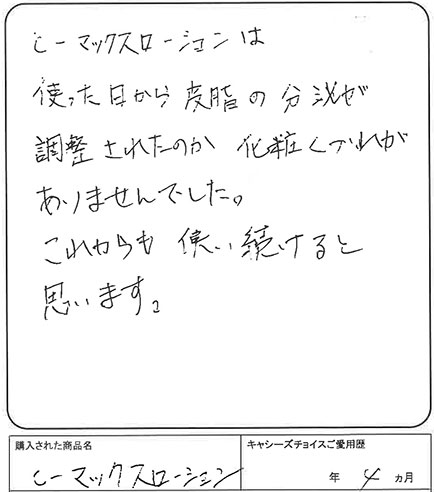 ヒーマックスローションは
使った日から皮脂の分泌が
調整されたのか 化粧くずれが
ありませんでした。
これからも 使い続けると
思います。
購入された商品名
キャシーズチョイスご愛用歴
ヒーマックスローション
年 4 ヵ月